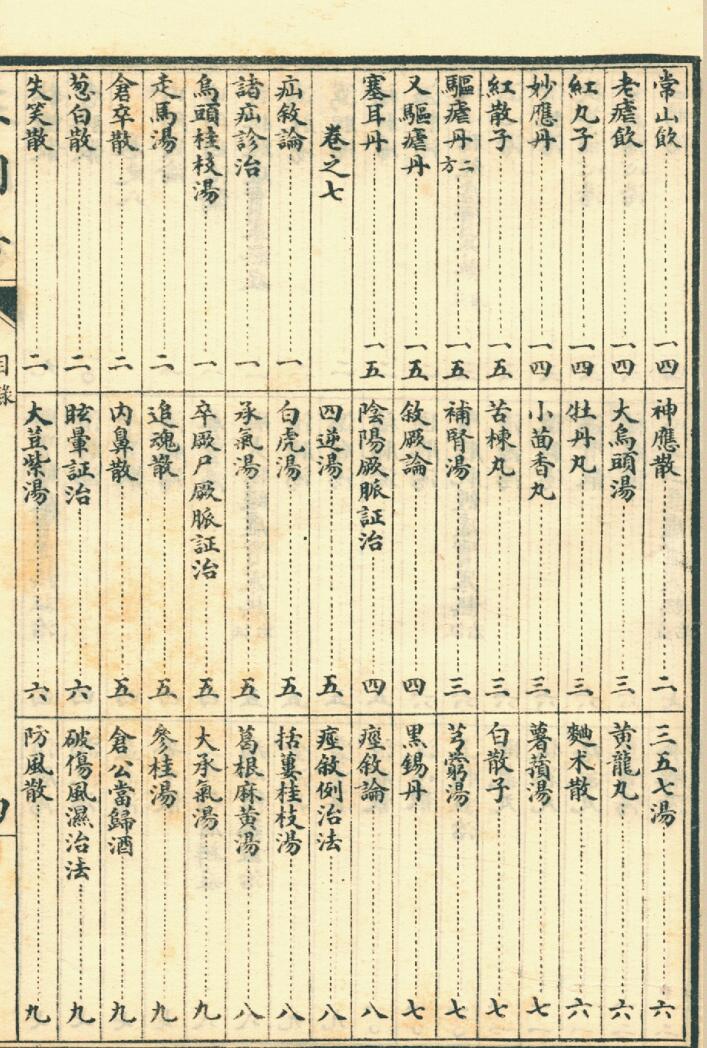 常山飲……一四
老瘧飲……一四
紅丸子……一四
妙應丹……一四
紅散子……一五
驅瘧丹二方……一五
又驅瘧丹……一五
塞耳丹……一五
卷之七
疝敘論……一
諸疝診治……一
烏頭桂枝湯……一
走馬湯……二
倉卒散……二
葱白散……二
失笑散……二
神應散……二
大烏頭湯……三
牡丹丸……三
小茴香丸……三
苦楝丸……三
補腎湯……三
敘厥論……四
陰陽厥脈証治……四
四逆湯……五
白虎湯……五
承氣湯……五
卒厥尸厥脈証治……五
追魂散……五
內鼻散……五
眩暈証治……六
大荳紫湯……六
三五七湯……六
黃龍丸……六
麯朮散……六
薯蕷湯……七
白散子……七
芎藭湯……七
黑錫丹……七
痙敘論……八
痙敘例治法……八
括蔞桂枝湯……八
葛根麻黃湯……八
大承氣湯……九
參桂湯……九
倉公當歸酒……九
破傷風濕治法……九
防風散……九
目錄